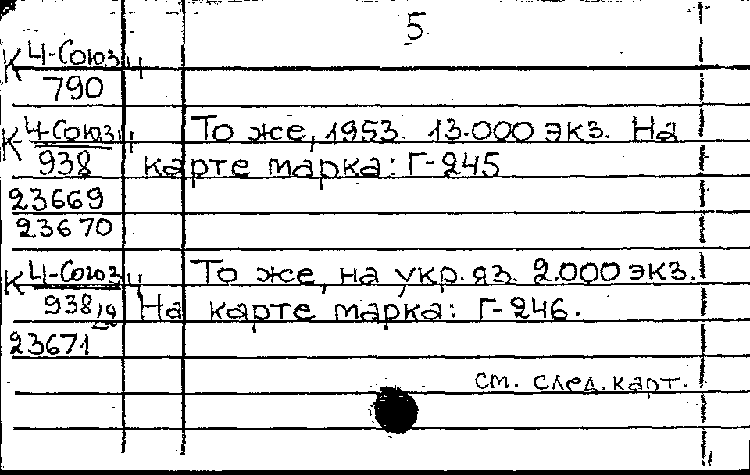 5
К Ц-Союз Ч
790
К Ц-Союз Ч То же, 1953. 13.000 экз. На
938 карте марка: Г-245
23669
23670
К Ц-Союз Ч То же, на укр. яз. 2.000 экз.
938 На карте марка: Г-246.
23671
см. след. карт.